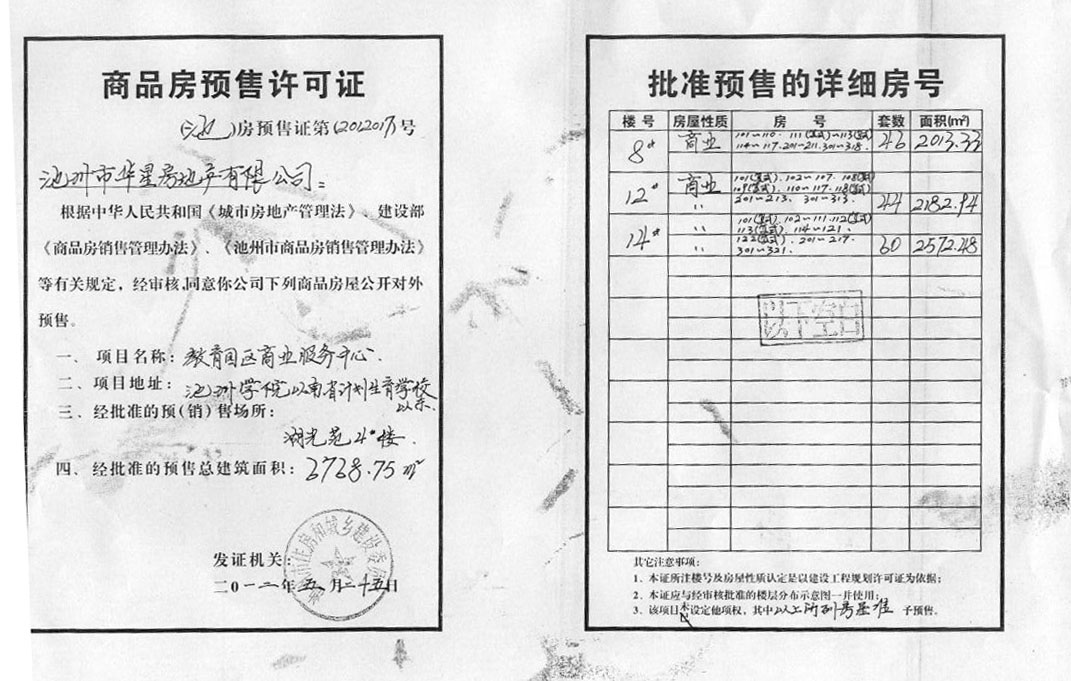 商品房预售许可证
(池)房预售证第(2012017)号
池州市华星房地产有限公司:
根据中华人民共和国《城市房地产管理法》、建设部
《商品房销售管理办法》、《池州市商品房销售管理办法》
等有关规定，经审核,同意你公司下列商品房屋公开对外
预售。
一、项目名称：教育园区商业服务中心.
二、项目地址：池州学院以南省计划生育学校
以东.
三、经批准的预(销)售场所：
湖光苑4#楼.
四、经批准的预售总建筑面积：6768.75m²
发证机关：
二0一二年五月二十五日
批准预售的详细房号
楼号 房屋性质 房号 套数 面积(m²)
8# 商业 101~110. 111(复式)~113(复式) 46 2013.33
114~117.201~211.301~318.
12# 商业 101(复式).102~107.108(复式)
109(复式).110~117.118(复式)
〃 201~213. 301~313. 44 2182.94
14# 〃 101(复式).102~111.112(复式)
113(复式).114~121.
〃 122(复式).201~217. 60 2572.48
301~321.
以下空白
其它注意事项：
1、本证所注楼号及房屋性质认定是以建设工程规划许可证为依据；
2、本证应与经审核批准的楼层分布示意图一并使用；
3、该项目未设定他项权，其中以上所列房屋准予预售。